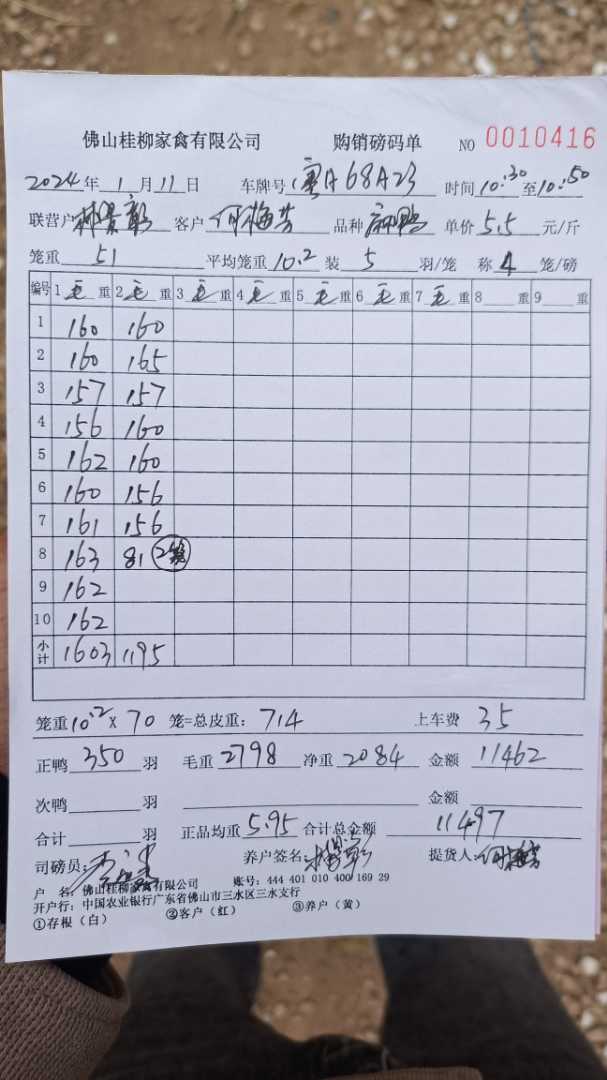 佛山桂柳家禽有限公司 购销磅码单 NO 0010416
2024年1月11日 车牌号 粤A68A23 时间10:30至10:50
联营户 林景彰 客户 何梅芳 品种 麻鸭 单价 5.5 元/斤
笼重 51 平均笼重 10.2 装 5 羽/笼 称 4 笼/磅
编号 1 毛 重 2 毛 重 3 毛 重 4 毛 重 5 毛 重 6 毛 重 7 毛 重 8 重 9 重
1 160 160
2 160 165
3 157 157
4 156 160
5 162 160
6 160 156
7 161 156
8 163 81 2笼
9 162
10 162
小计 1603 1195
笼重 10.2 X 70 笼=总皮重: 714 上车费 35
正鸭 350 羽 毛重 2798 净重 2084 金额 11462
次鸭 羽 金额
合计 羽 正品均重 5.95 合计总金额 11497
司磅员: 养户签名: 林景彰 提货人: 何梅芳
户 名: 佛山桂柳家禽有限公司 账号: 444 401 010 400 169 29
开户行: 中国农业银行广东省佛山市三水区三水支行
①存根(白) ②客户(红) ③养户(黄)